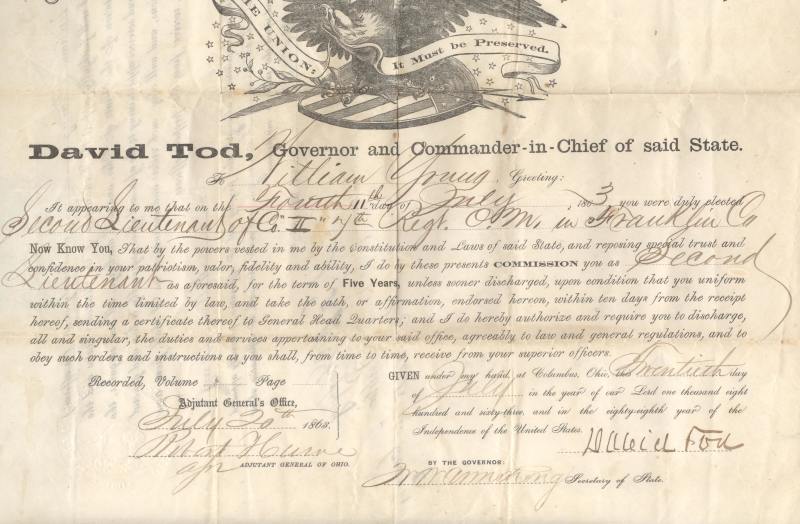 THE UNION:
It Must be Preserved.
David Tod, Governor and Commander-in-Chief of said State.
To William Young Greeting:
It appearing to me that on the Fourth 11th day of July 1863 you were duly elected
Second Lieutenant of Co "I" 7th Regt. O. M. in Franklin Co
Now Know You, That by the powers vested in me by the Constitution and Laws of said State, and reposing special trust and
confidence in your patriotism, valor, fidelity and ability, I do by these presents COMMISSION you as Second
Lieutenant as aforesaid, for the term of Five Years, unless sooner discharged, upon condition that you uniform
within the time limited by law, and take the oath, or affirmation, endorsed hereon, within ten days from the receipt
hereof, sending a certificate thereof to General Head Quarters; and I do hereby authorize and require you to discharge,
all and singular, the duties and services appertaining to your said office, agreeably to law and general regulations, and to
obey such orders and instructions as you shall, from time to time, receive from your superior officers.
Recorded, Volume Page
Adjutant General's Office,
July 20th 1863.
ADJUTANT GENERAL OF OHIO.
GIVEN under my hand, at Columbus, Ohio, this Twentieth day
of July in the year of our Lord one thousand eight
hundred and sixty-three, and in the eighty-eighth year of the
Independence of the United States.
David Tod
BY THE GOVERNOR:
Secretary of State.